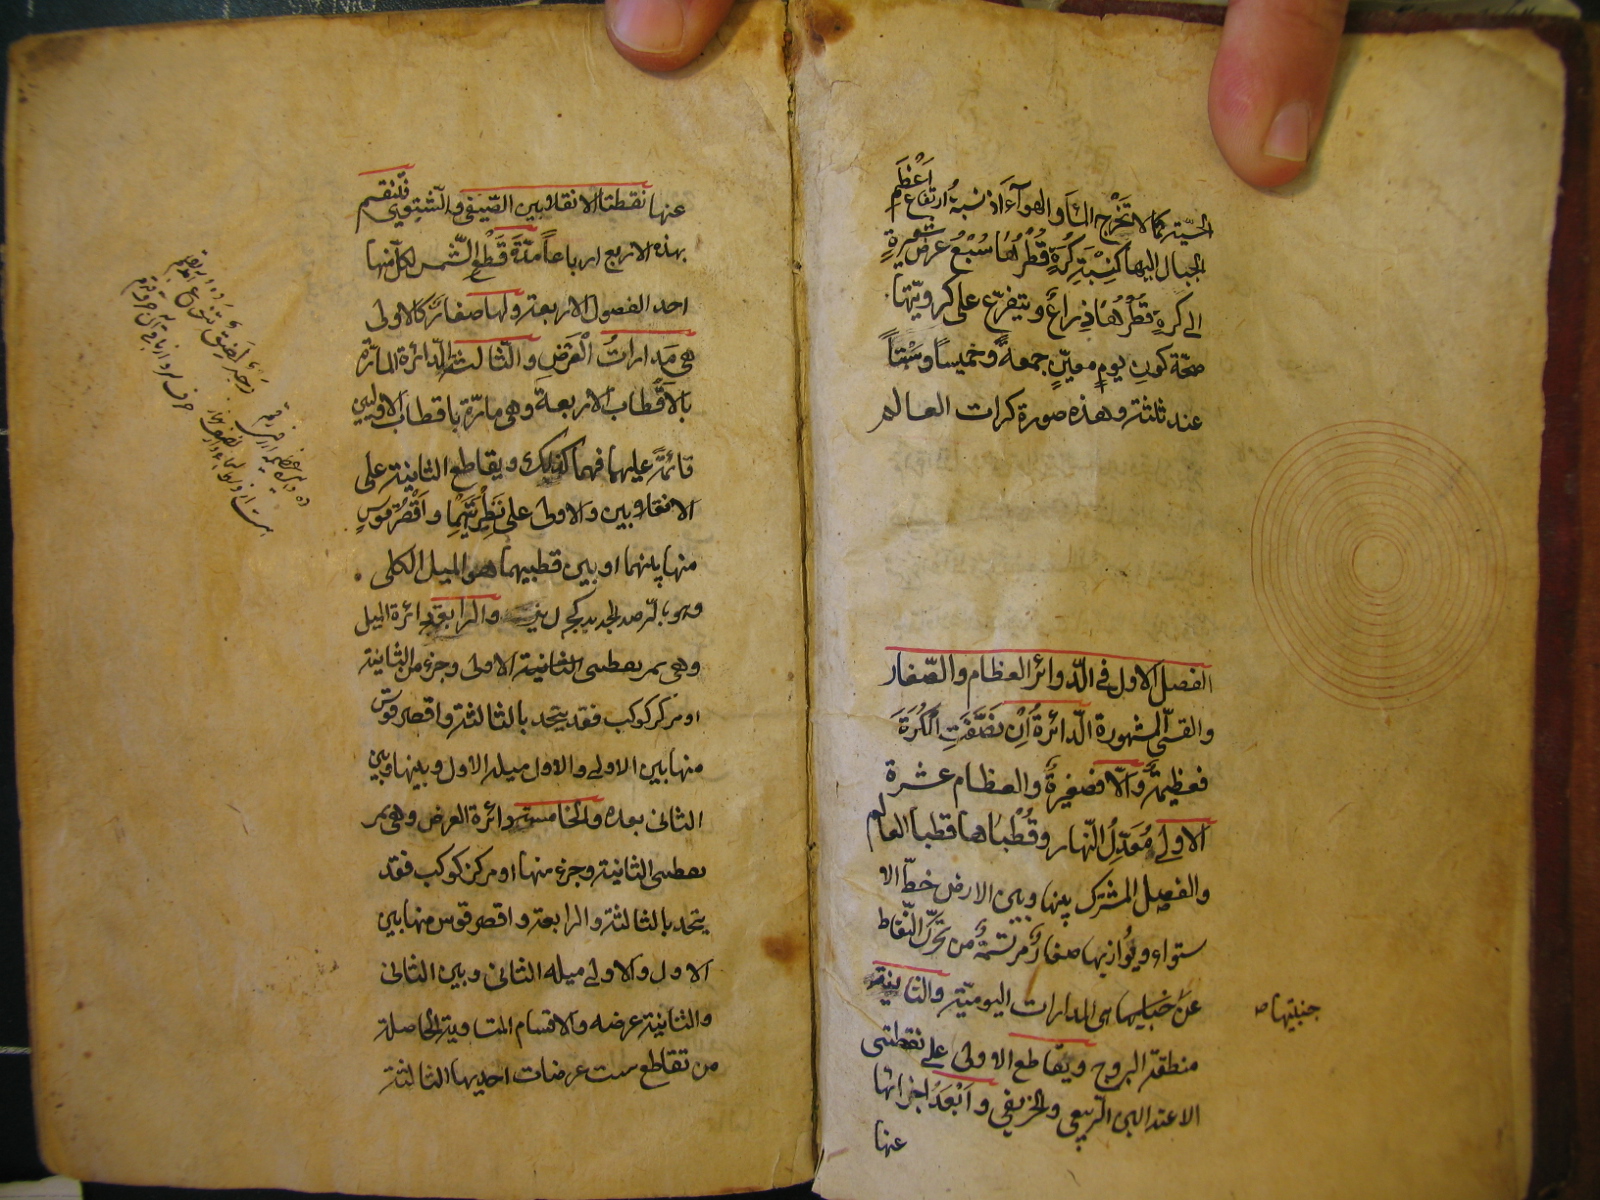 الحسّية كما لا تخرج الماء والهواء اذ نسبة ارتفاع أعظم
الجبال اليها كنسبة كرة قطرها سُبْعُ عرض شعيرة
الى كرة قطرها ذراع ويتفرّع على كرويّتها
صحّة كون يوم معيّن جمعةً وخميساً وستّاً
عند ثلثة وهذه صورة كرات العالم
الفصل الاول في الدّوائر العظام والصّغار
والقسيّ المشهورة الدّائرة اِنْ نصَّفَتِ الكُرَةَ
فعظيمةٌ والّا فصغيرةٌ والعظام عشرة
الاولى مُعَدِّلُ النّهار وقُطْبَاها قطبا العالم
والفصل المشترك بينها وبين الارض خطّ الا
ستواء ويُوازيها صغارٌ مرتسمةٌ من تحرّك النّقاط
عن جنبيها هى المدارات اليوميّة والثانية
جنبتيها صح
منطقة البروج ويقاطع الاولى على نقطتى
الاعتدالين الرّبيعى والخريفى وأبْعَدُ اجزائها
عنها
عنها نقطتا الانقلابين الصّيفى والشّتوى فلنقسم
بهذه الاربع ارباعاً مدّة قَطْعِ الشّمس لكلّ منها
احد الفصول الاربعة ولها صغارٌ كالاولى
هى مَدارات العَرْض والثّالثة الدّائرة المارّة
بالأقطاب الاربعة وهى مارّة باقطاب الاوليين
قائمةٌ عليهما فهما كذلك ويقاطع الثانية على
الانقلابين والاولى على نَظِيرَتَيْهِما وأقْصَرُ قوسٍ
منها بينهما او بين قطبيهما هو الميل الكلى
وهو بالرّصد الجديد والرابعة دائرة الميل
وهى تمر بقطبى الاولى وجزء من الثانية
او مركز كوكب فقد يتحد بالثالثة واقصر قوس
منها بين الاولى والاول ميله الاول وبينها وبين
الثانى بعده والخامسة دائرة العرض وهى تمر
بقطبى الثانية وجزء منها او مركز كوكب فقد
يتحد بالثالثة والرابعة واقصر قوس منها بين
الاول والاولى ميله الثانى وبين الثانى
والثانية عرضه والاقسام المتساوية الحاصلة
من تقاطع ست عرضيات احديها الثالثة